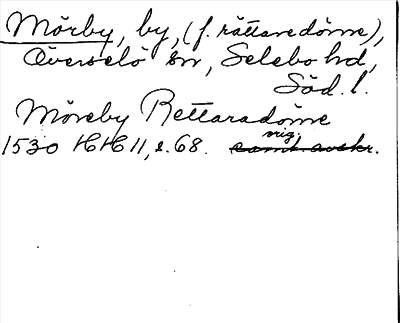 Mörby, by, (f. rättaredöme),
Överselö sn, Selebo hd,
Söd. l.
Möreby Rettaradöme
orig.
1530 HH 11, s. 68. samt. avskr.